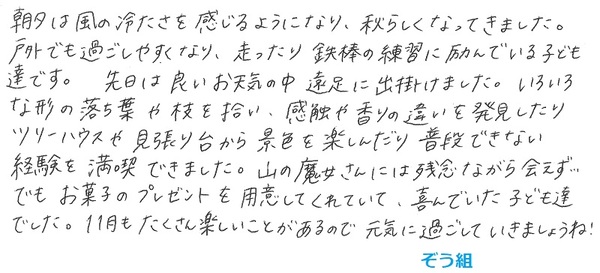 朝夕は風の冷たさを感じるようになり、秋らしくなってきました。
戸外でも過ごしやすくなり、走ったり鉄棒の練習に励んでいる子ども
達です。 先日は良いお天気の中遠足に出掛けました。いろいろ
な形の落ち葉や枝を拾い、感触や香りの違いを発見したり
ツリーハウスや見張り台から景色を楽しんだり普段できない
経験を満喫できました。山の魔女さんには残念ながら会えず…
でもお菓子のプレゼントを用意してくれていて、喜んでいた子ども達
でした。11月もたくさん楽しいことがあるので元気に過ごしていきましょうね!
ぞう組